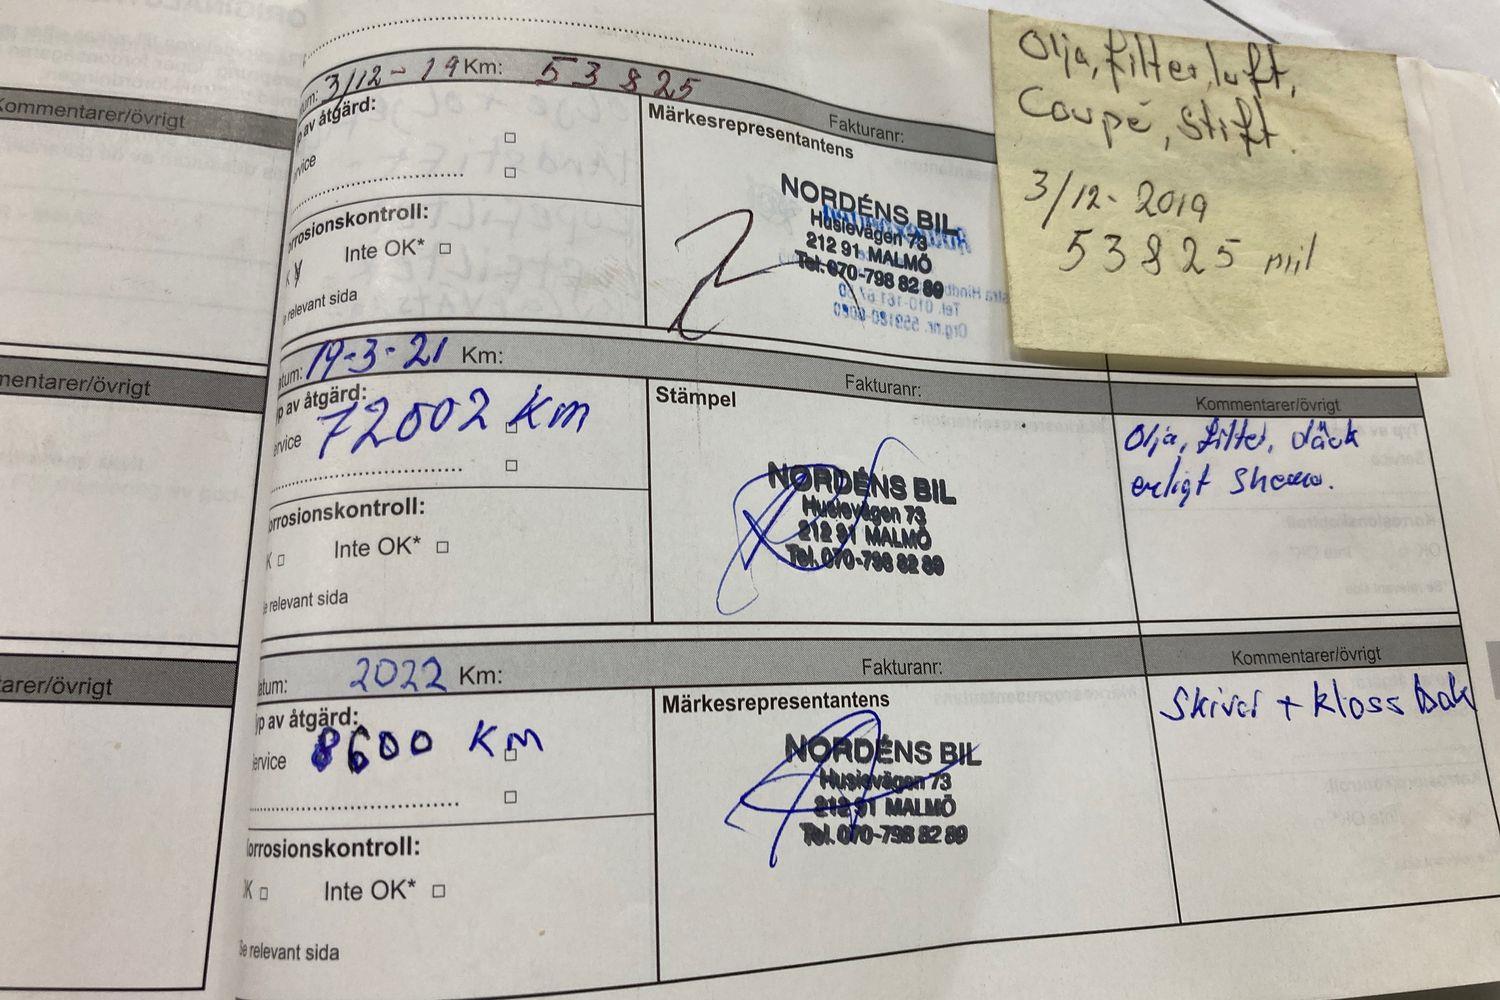 Kommentarer/övrigt
mentarer/övrigt
tarer/övrigt
um: 3/12-19 Km: 53825
Fakturanr:
p av åtgärd:
rvice
orrosionskontroll:
Inte OK*
K
e relevant sida
Märkesrepresentantens
NORDÉNS BIL
Husievägen 73
212 91 MALMÖ
Tel. 070-798 82 89
Olja, filter, luft,
Coupé, stift.
3/12-2019
53825 mil
atum: 19-3-21 Km:
Fakturanr:
Kommentarer/övrigt
yp av åtgärd:
ervice 72002 km
orrosionskontroll:
K Inte OK*
e relevant sida
Stämpel
NORDÉNS BIL
Husievägen 73
212 91 MALMÖ
Tel. 070-798 82 89
Olja, filter, däck
enligt
atum: 2022 Km:
Fakturanr:
Kommentarer/övrigt
yp av åtgärd:
ervice 8600 km
orrosionskontroll:
OK Inte OK*
Se relevant sida
Märkesrepresentantens
NORDÉNS BIL
Husievägen 73
212 91 MALMÖ
Tel. 070-798 82 89
Skivor + kloss bak